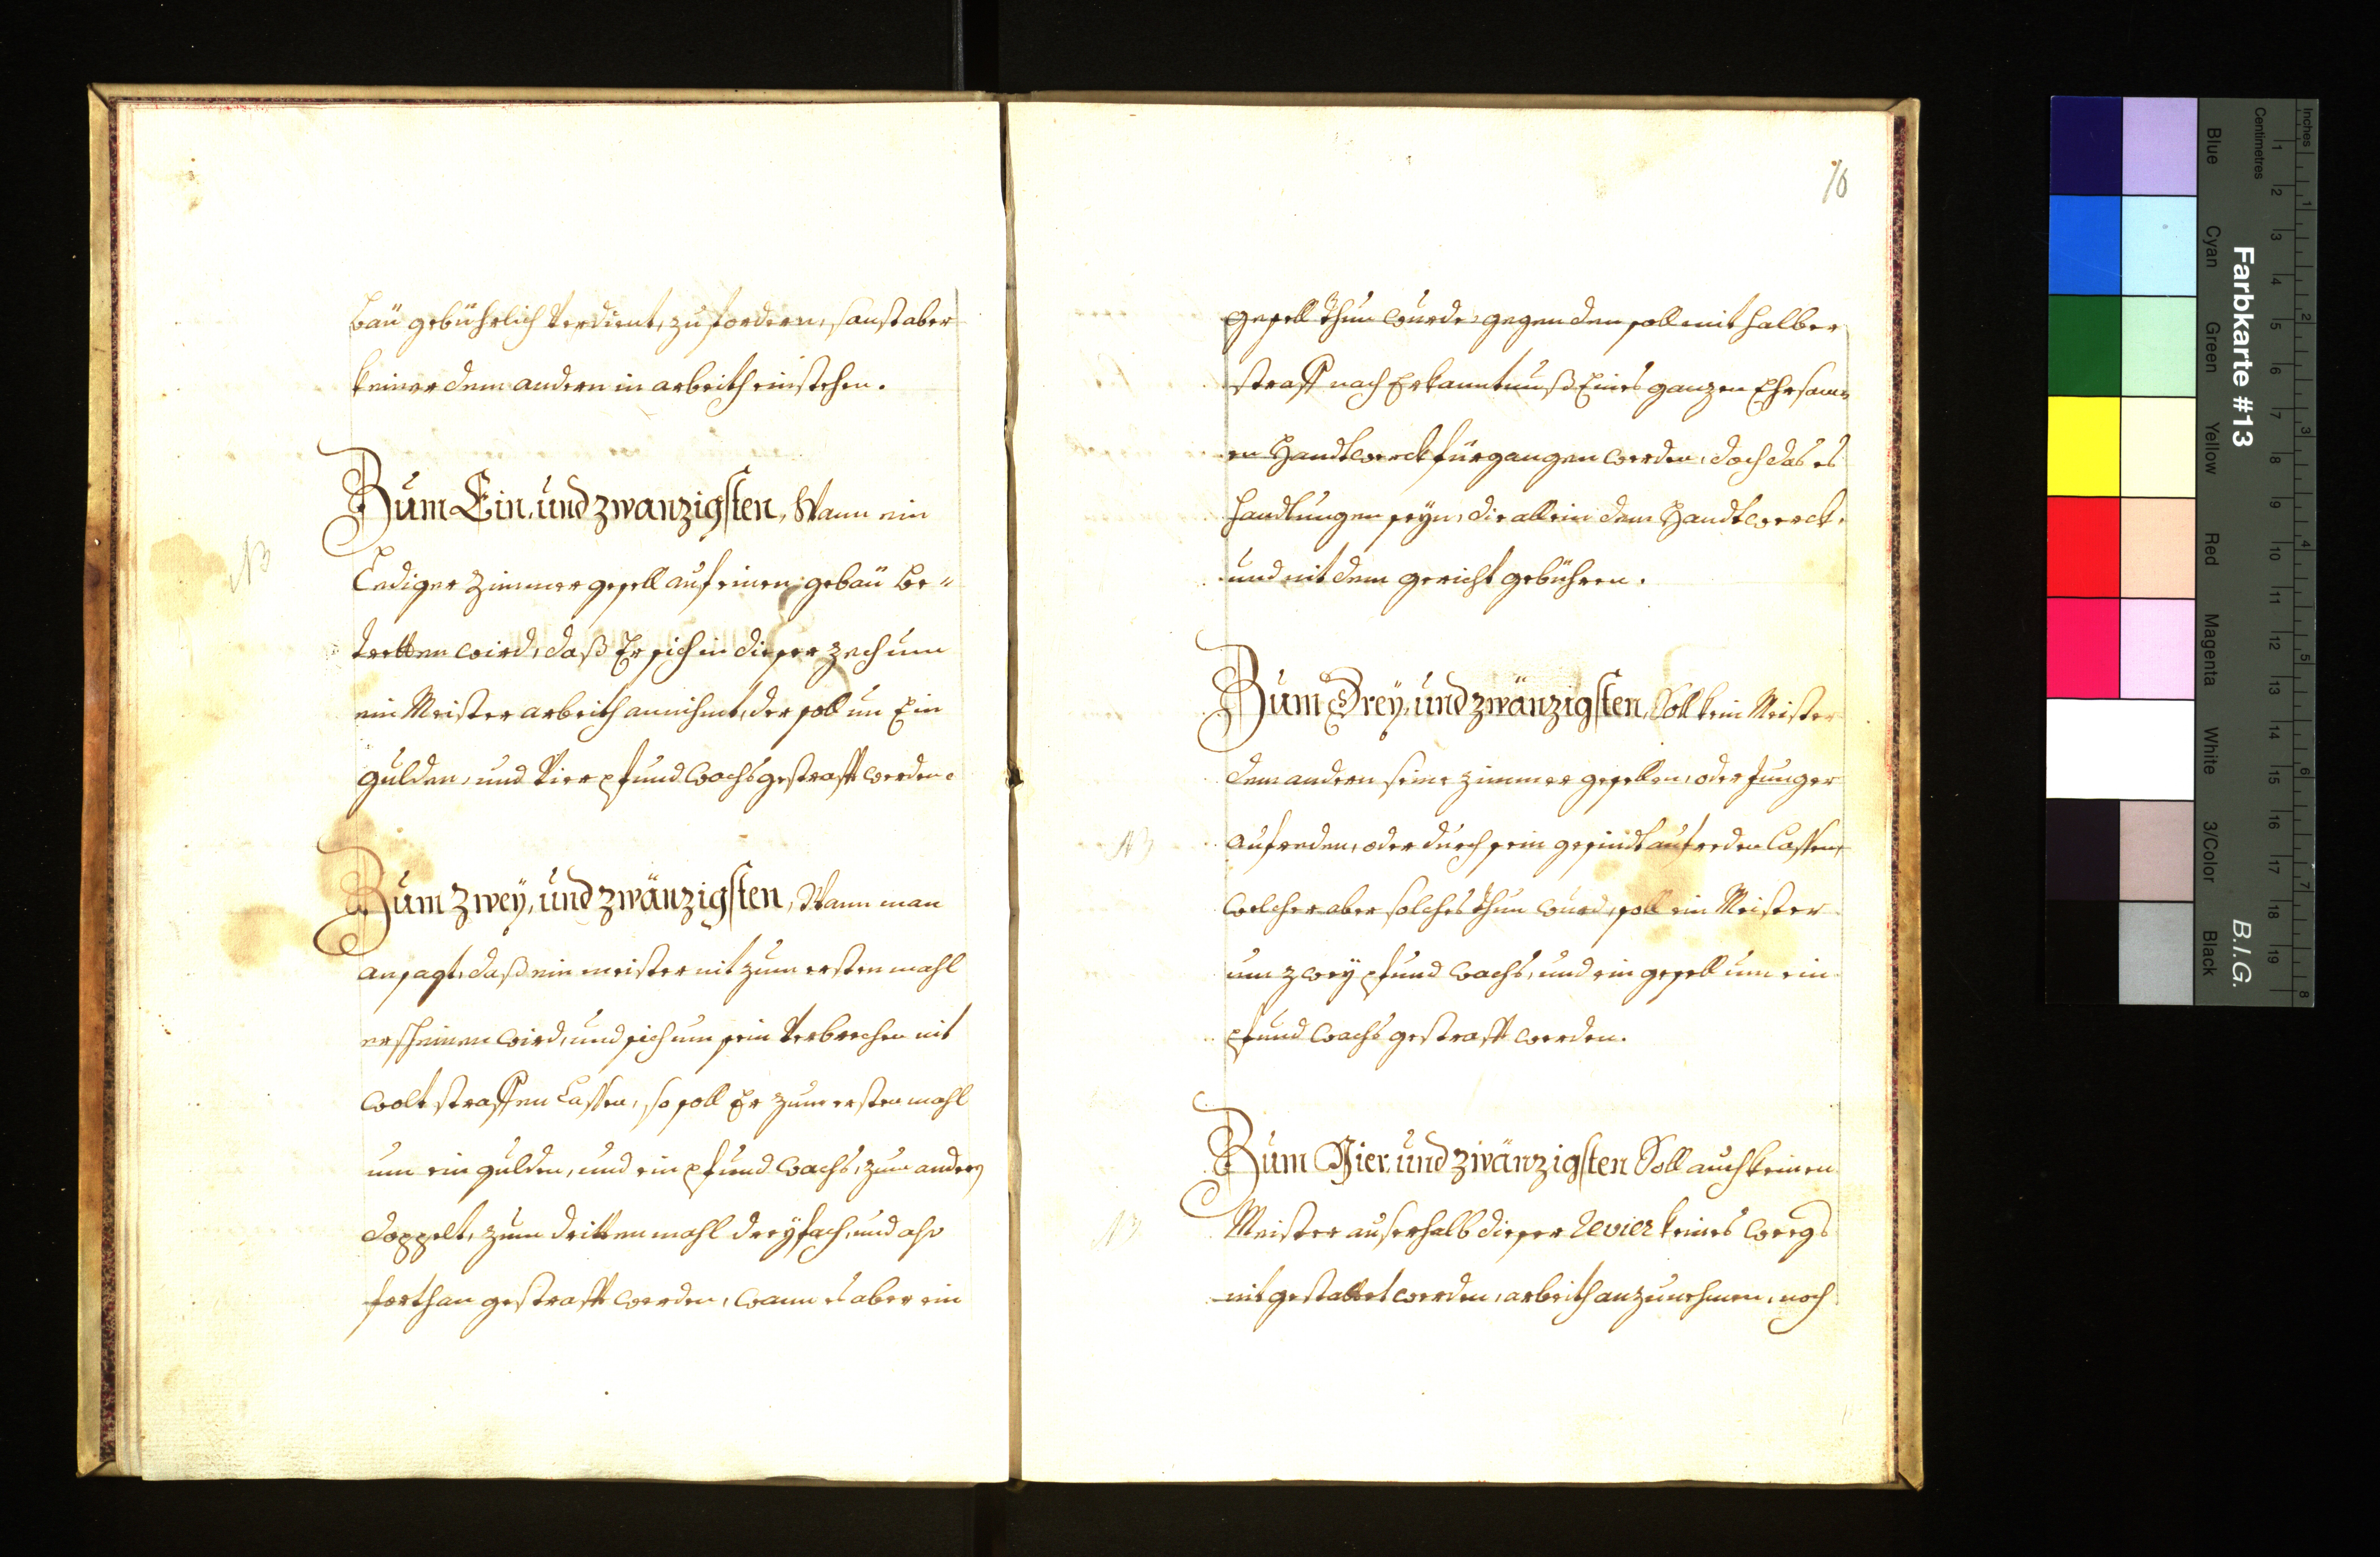 bäu gebührlich verdient, zu fordern, sonst aber
keiner dem andern in arbeith einstehen.
Zum Ein, und zwanzigsten, Wann ein
NB
Lediger Zimmergesell auf einen gebäu be-
tretten wird, daß Er sich in dieser zech um
ein Meister arbeith annihmt, der soll um Ein
gulden, und vier pfund wachs gestrafft werden.
Zum Zwey, und zwänzigsten, Wann man
ansagt, daß ein meister nit zum ersten mahl
erscheinen wird, und sich um sein verbrechen nit
wolt straffen Lassen, so soll Er zum ersten mahl
um ein gulden, und ein pfund wachs, zum andern
doppelt, zum dritten mahl dreyfach, und also
forthan gestrafft werden, wann es aber ein
10
gesell thun wurde, gegen den soll mit halber
straff nach Erkanntnuß Eines ganzen Ehrsam-
en Handtwerck fürgangen werden, doch das es
handlungen seyn, die allein dem Handtwerck,
und nit dem gericht gebühren.
Zum Drey, und zwänzigsten, Soll kein Meister
dem andern seine zimmer gesellen, oder Junger
aufreden, oder durch sein gesindt aufreden lassen,
NB
welcher aber solches thun wurd, soll ein Meister
um zwey pfund wachs, und ein gesell um ein
pfund wachs gestrafft werden.
Zum Vier und zwänzigsten Soll auch keinen
Meister auserhalb dieser Revier keines weegs
NB
nit gestattet werden, arbeith anzunehmen, noch
Inches
Centimetres
1 2 3 4 5 6 7 8 9 10 11 12 13 14 15 16 17 18 19
1 2 3 4 5 6 7 8
Farbkarte #13
B.I.G.
Blue
Cyan
Green
Yellow
Red
Magenta
White
3/Color
Black